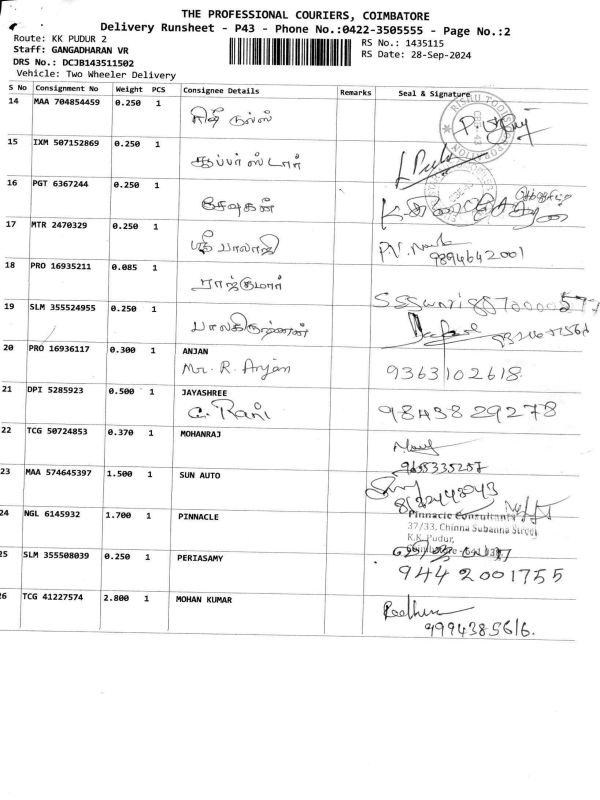 THE PROFESSIONAL COURIERS, COIMBATORE
Delivery Runsheet - P43 - Phone No.:0422-3505555 - Page No.:2
Route: KK PUDUR 2
RS No.: 1435115
Staff: GANGADHARAN VR
RS Date: 28-Sep-2024
DRS No.: DCJB143511502
Vehicle: Two Wheeler Delivery
S No Consignment No Weight PCS Consignee Details Remarks Seal & Signature
14 MAA 704854459 0.250 1
15 IXM 507152869 0.250 1
சூப்பர் ஸ்டார்
16 PGT 6367244 0.250 1
சேவுகன்
17 MTR 2470329 0.250 1
ஸ்ரீ பாலாஜி
9894642001
18 PRO 16935211 0.085 1
ராஜ்குமார்
19 SLM 355524955 0.250 1
பாலகிருஷ்ணன்
20 PRO 16936117 0.300 1 ANJAN
Mr. R. Anjan 9363102618
21 DPI 5285923 0.500 1 JAYASHREE
C. Rani 9843829278
22 TCG 50724853 0.370 1 MOHANRAJ
9655335257
23 MAA 574645397 1.500 1 SUN AUTO
24 NGL 6145932 1.700 1 PINNACLE
Pinnacle Consultants
37/33, Chinna Subanna Street
K.K. Pudur,
25 SLM 355508039 0.250 1 PERIASAMY
9442001755
26 TCG 41227574 2.800 1 MOHAN KUMAR
9994385616.